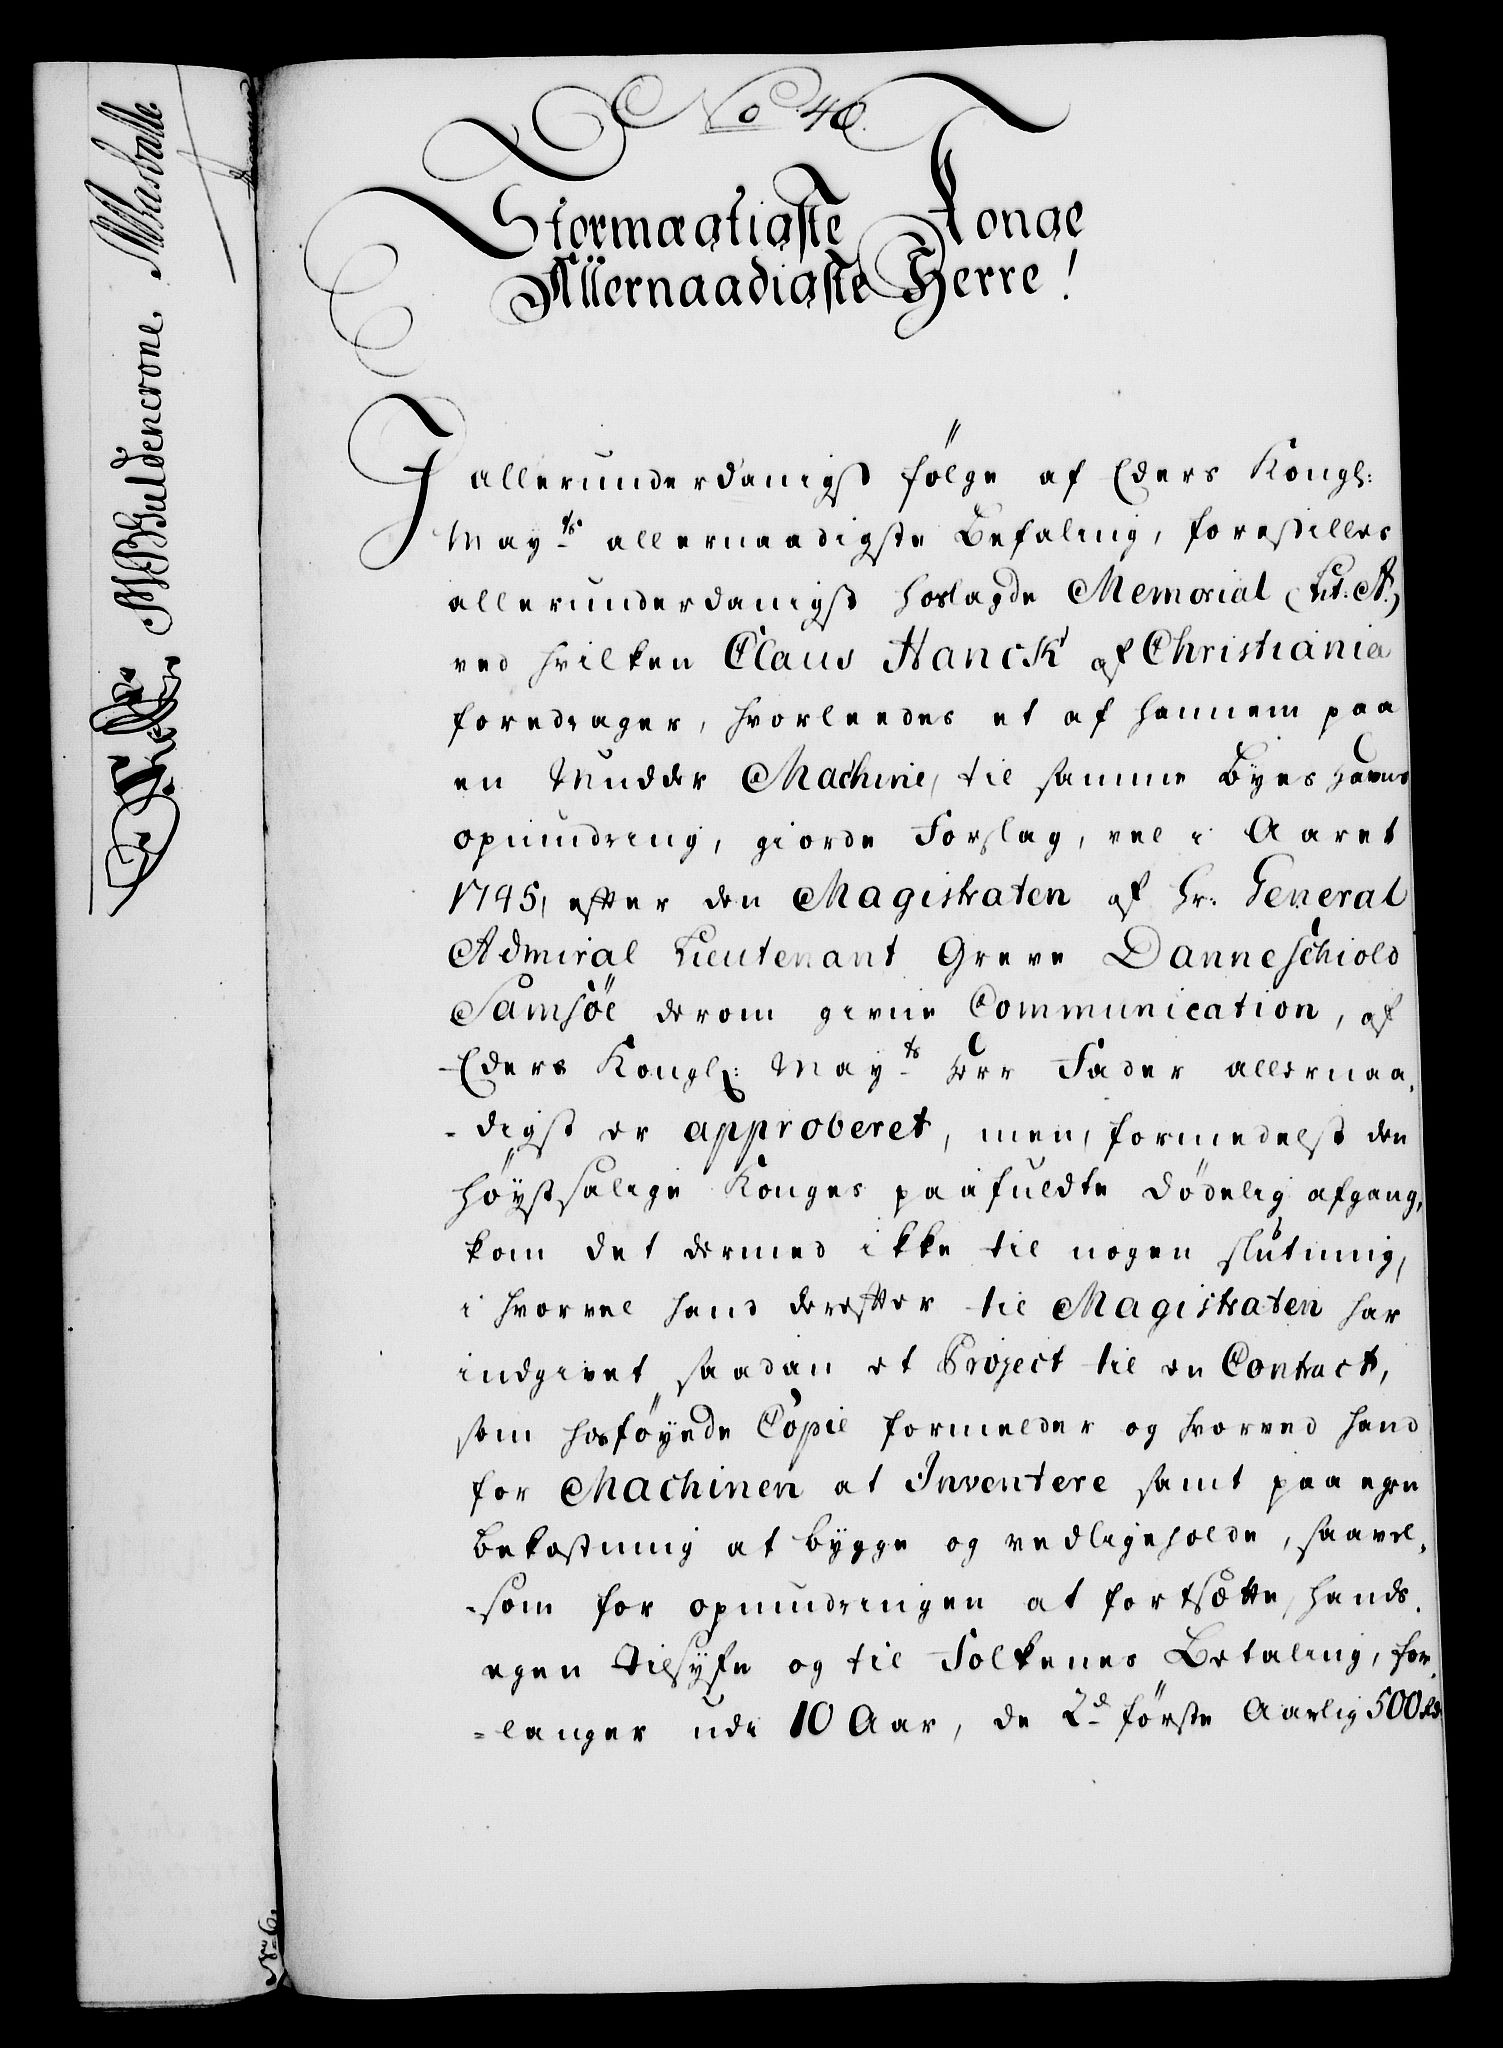 No. 40.
Stormægtigste Konge
Allernaadigste Herre!
I allerunderdanigst følge af Eders Kongl:
May.ts allernaadigste Befaling, forestilles
allerunderdanigst hoslagde Memorial (Lit: A.)
ved hvilken Claus Hanck af Christiania
foredrager, hvorleedes et af hannem paa
en Mudder Machine, til samme Byes Havns
opmudring, giorde Forslag, vel i Aaret
1745, efter den Magistraten af Hr. General
Admiral Lieutenant Greve Danneschiold
Samsöe derom givne Communication, af
Eders Kongl: May.ts Herr Fader allernaa-
-digst er approberet, men, formedelst den
høystsalige Konges paafuldte dødelig afgang,
kom det dermed ikke til nogen slutning,
i hvorvel hand derefter til Magistraten har
indgivet saadan et Project til en Contract,
som hosføyede Copie formelder og hvorved hand
for Machinen at Inventere samt paa egen
bekostning at bygge og vedligeholde, saavel-
-som for opmudringen at fortsætte, hands
egen tilsyn og til Folkenes Betaling, for-
-langer udi 10 Aar, de 2.de første Aarlig 500 rd
M B Guldencrone.
No. 6.